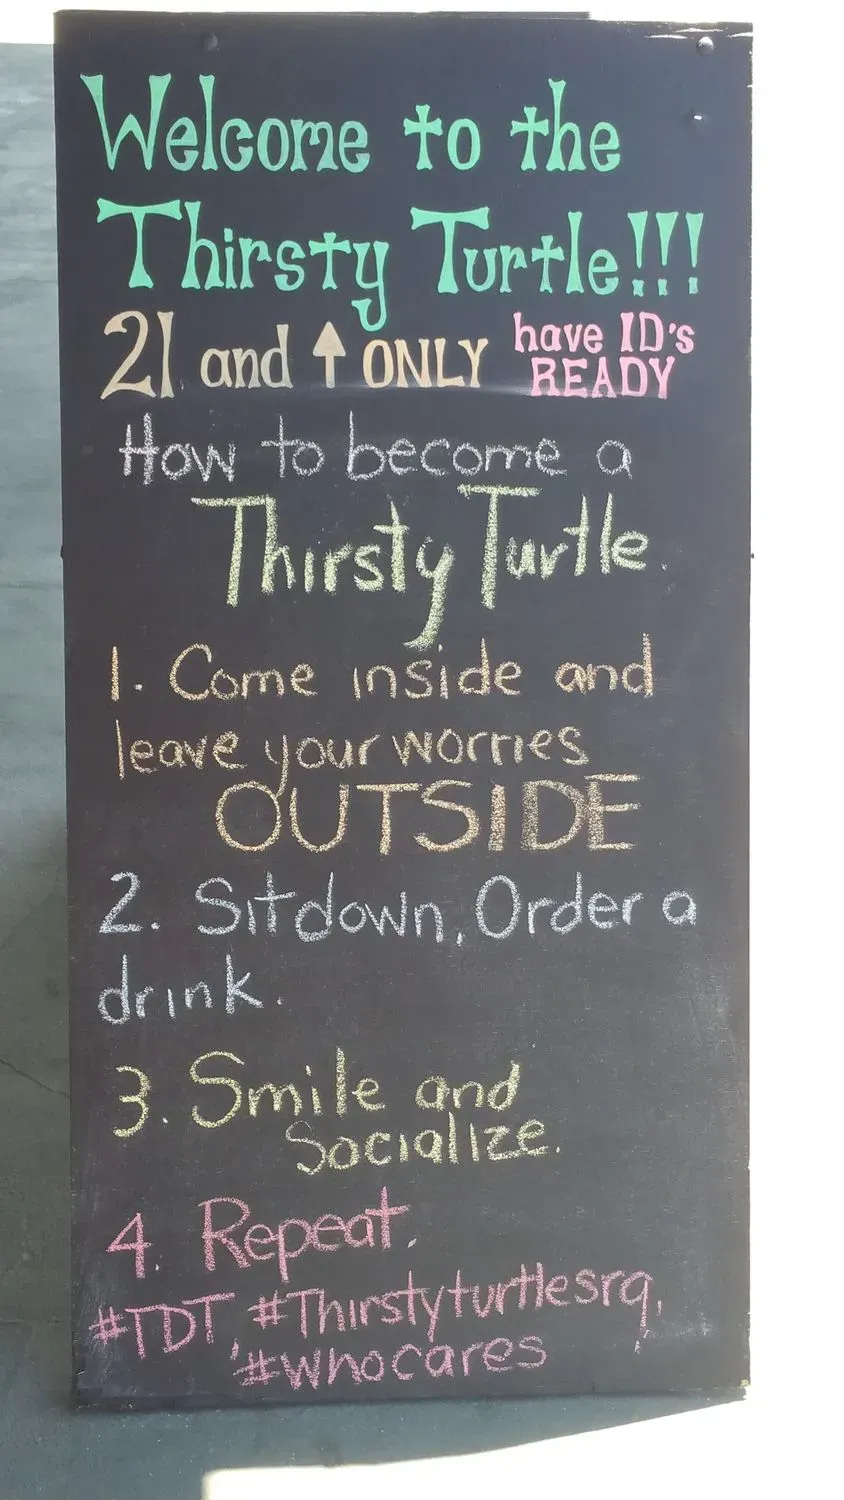 Welcome to the
Thirsty Turtle!!!
21 and ↑ ONLY have ID's READY
How to become a
Thirsty Turtle.
1. Come inside and
leave your worries
OUTSIDE
2. Sit down, Order a
drink.
3. Smile and
Socialize.
4. Repeat.
#TDT, #Thirstyturtlesrq,
#whocares